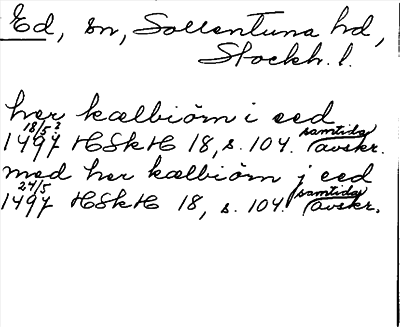 Ed, sn, Sollentuna hd,
Stockh. l.
her kælbiörn i eed
18/5 ? samtida
1497 HSkH 18, s. 104. (avskr.
med her kælbiörn j eed
24/5 samtida
1497 HSkH 18, s. 104. (avskr.